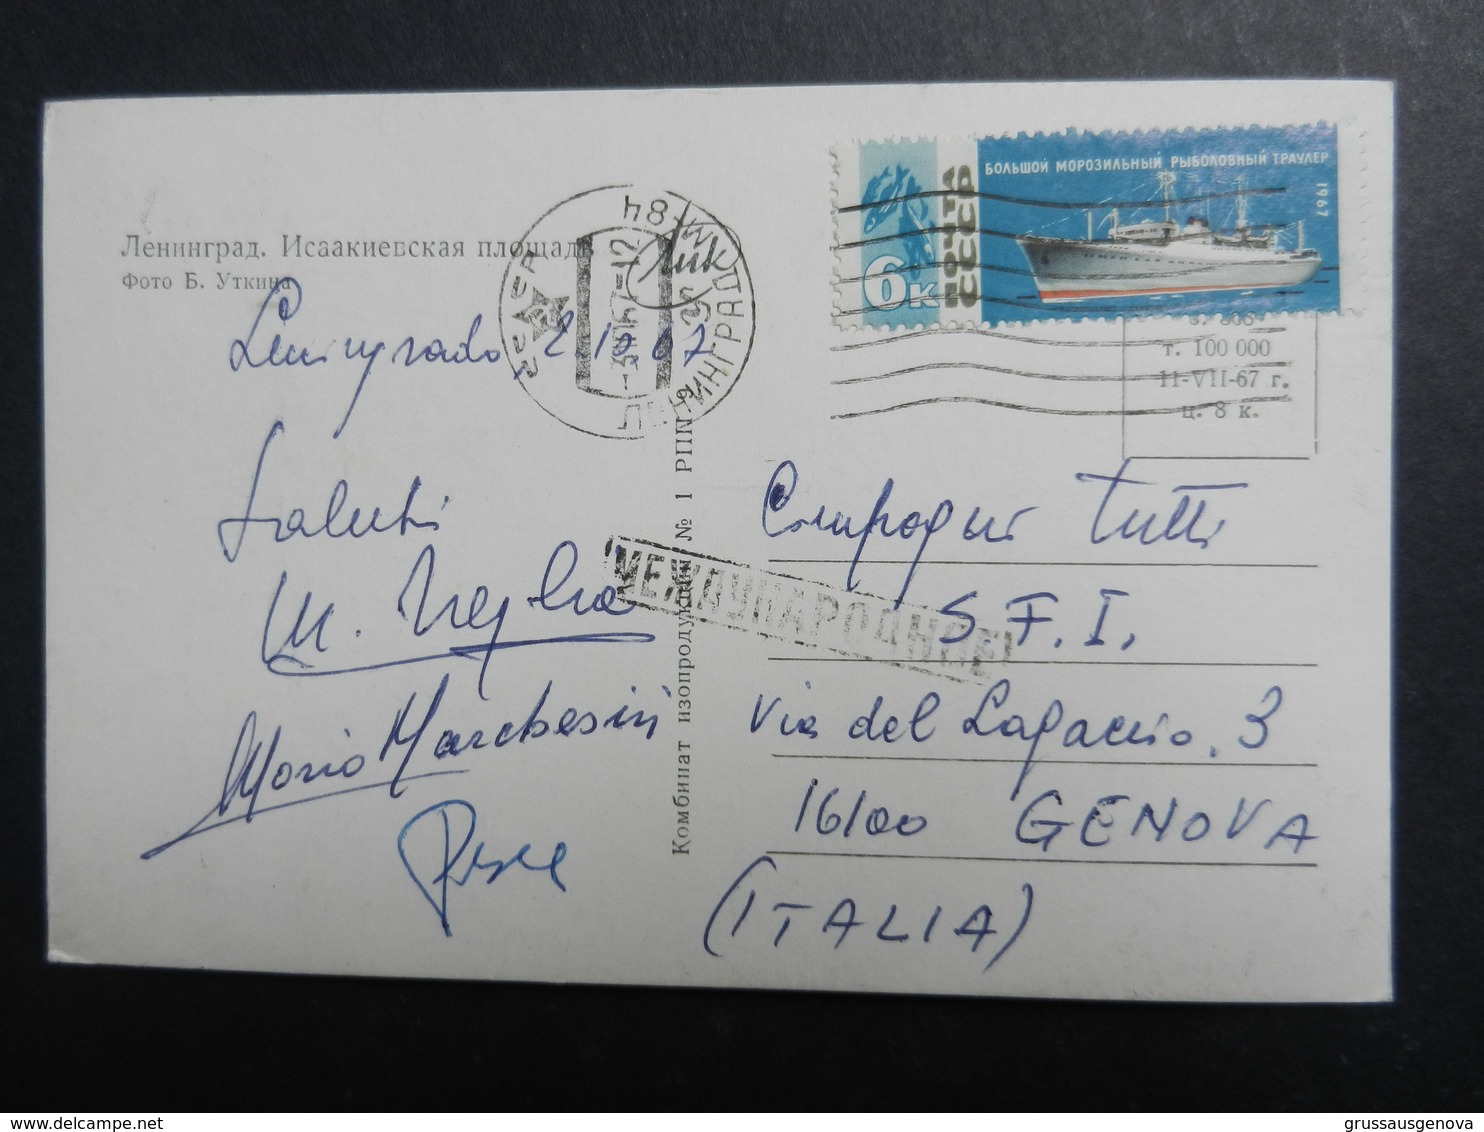 Ленинград. Исаакиевская площадь
Фото Б. Уткина
Leningrado, 2.10.67
Saluti
Mario Marchesini
Pesce
СССР
ЛЕНИНГРАД
МЕЖДУНАРОДНОЕ
Комбинат изопродукции № 1 РПП
6к
ПОЧТА
СССР
БОЛЬШОЙ МОРОЗИЛЬНЫЙ РЫБОЛОВНЫЙ ТРАУЛЕР
1967
т. 100 000
11-VII-67 г.
ц. 8 к.
Tutti
S. F. I.
Via del Lagaccio. 3
16100 GENOVA
(ITALIA)
delcampe.net
grussausgenova